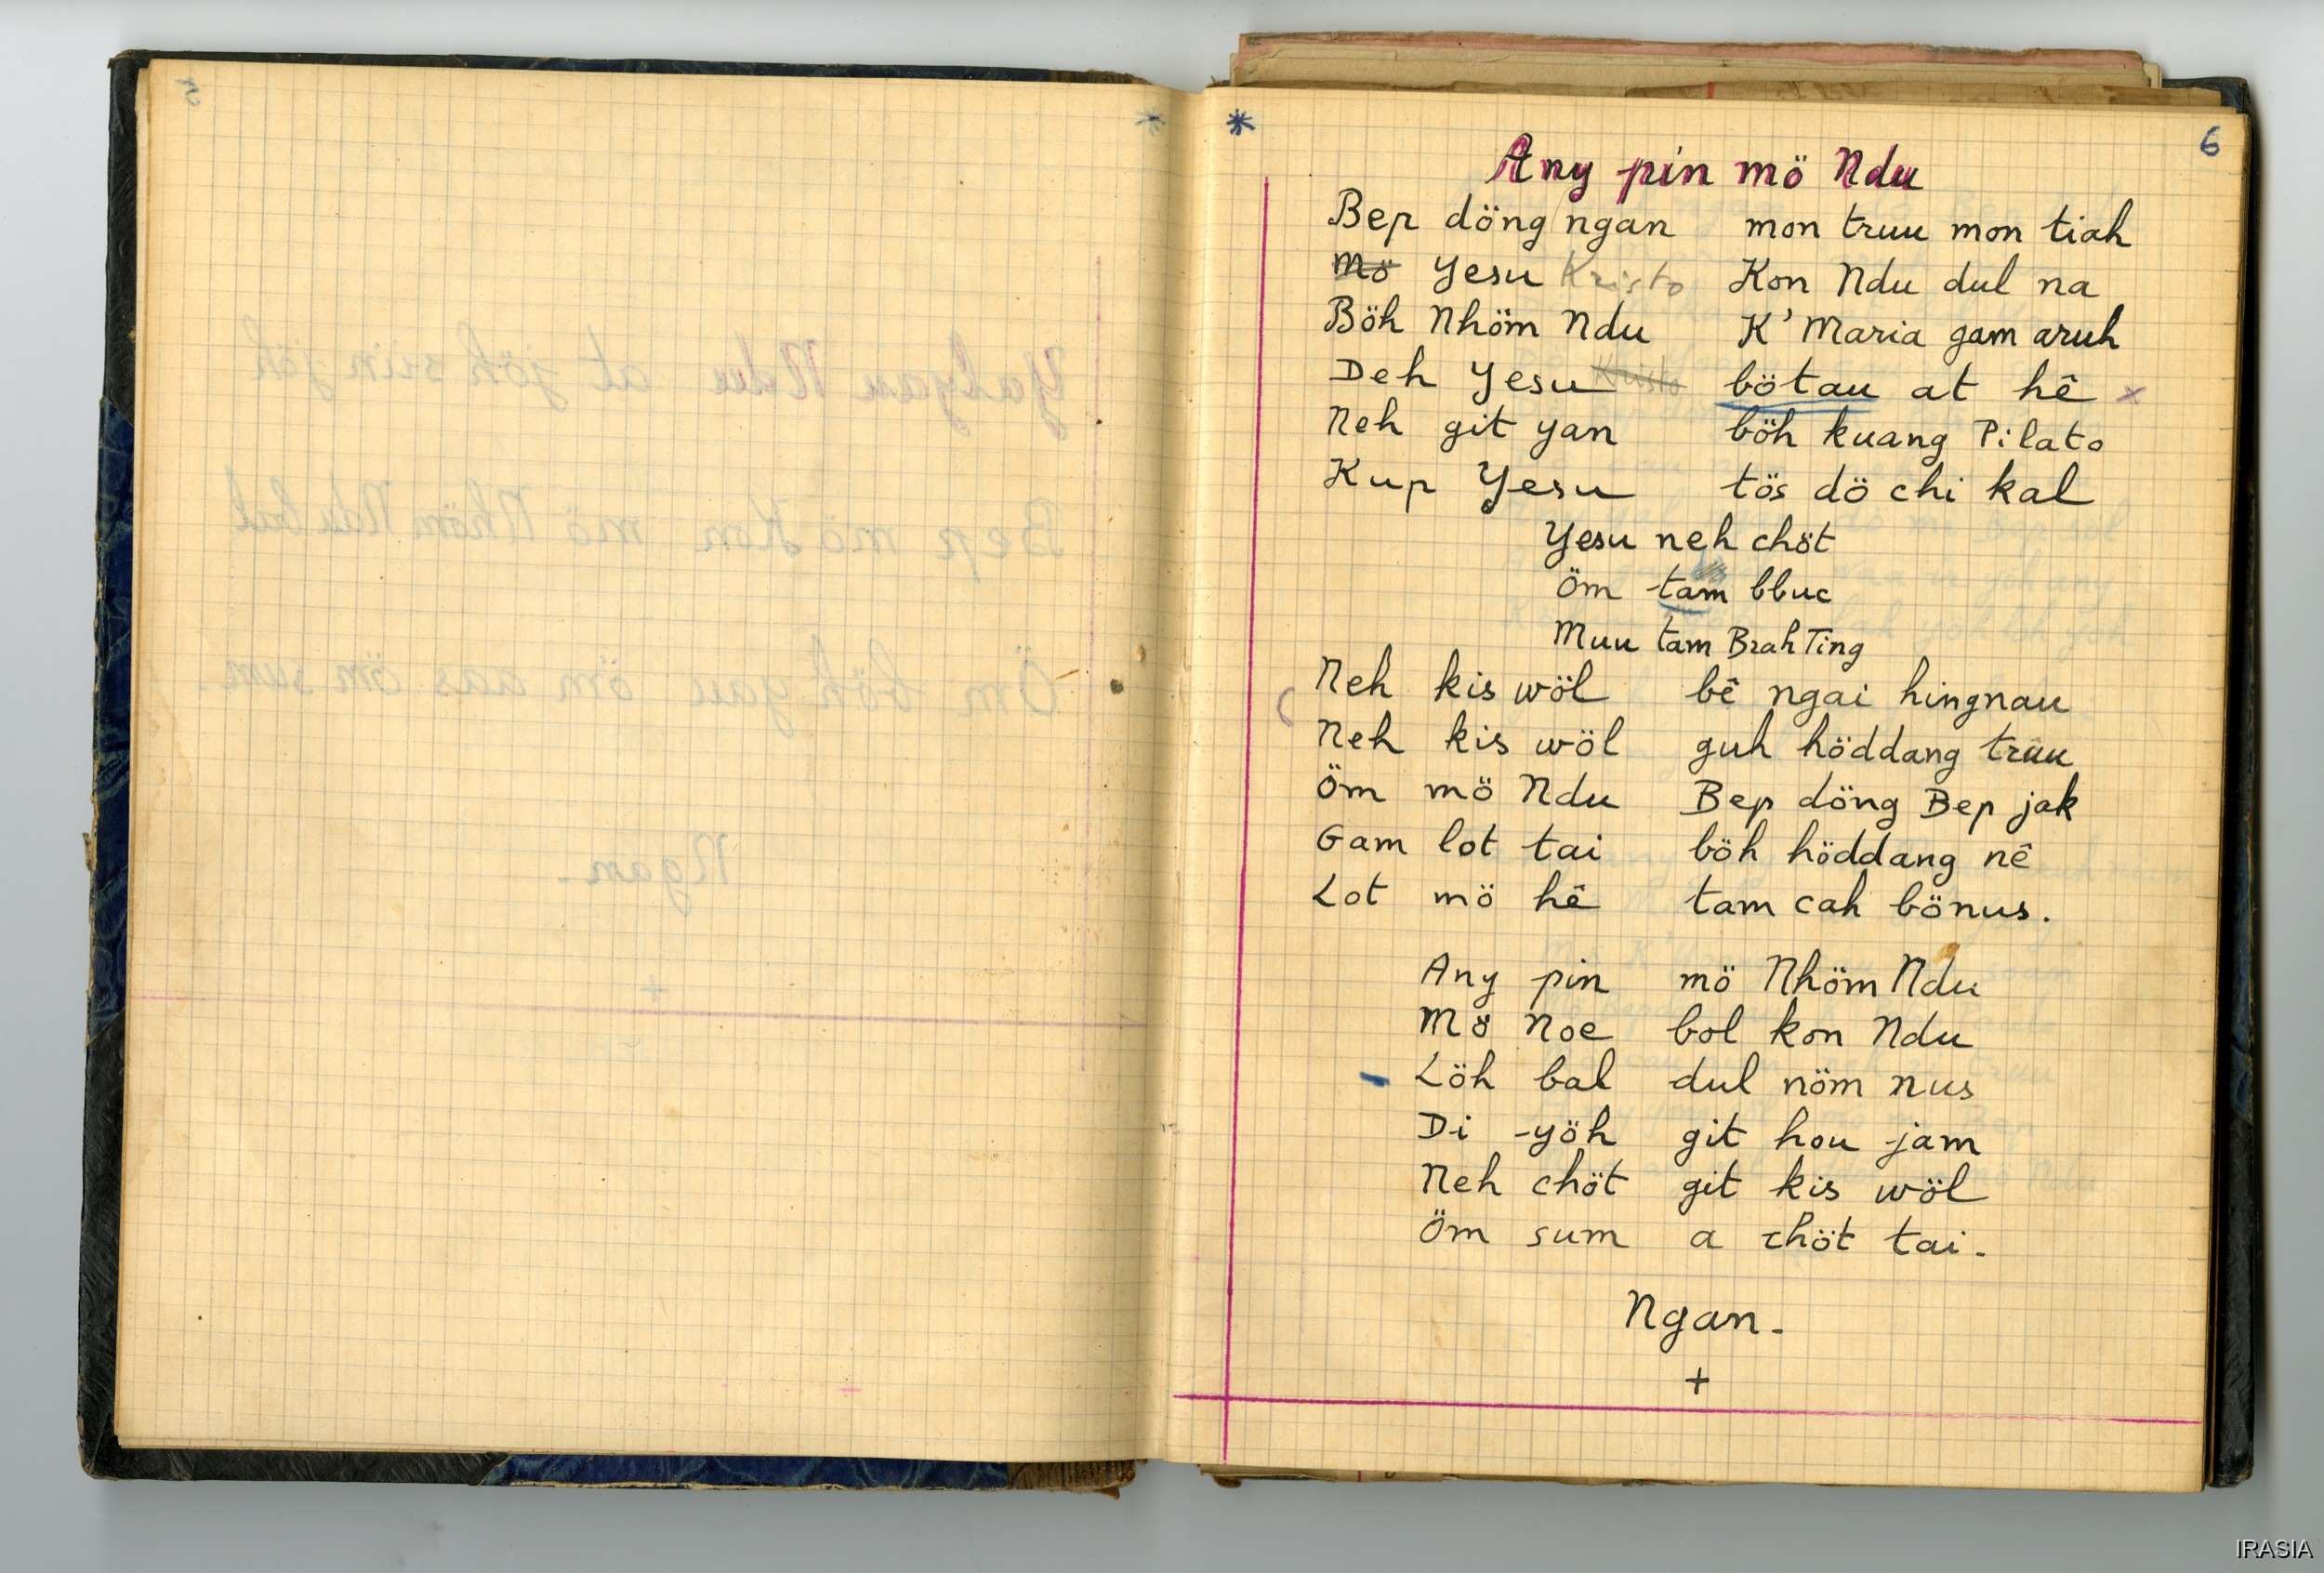 6
Any pin mö Ndu
Bep döng ngan mon truu mon tiah
Mö Yesu Kristo Kon Ndu dul na
Böh Nhöm Ndu K'Maria gam aruh
Deh Yesu Kristo bötau at hê x
Neh git yan böh kuang Pilato
Kup Yesu tös dö chi kal
Yesu neh chöt
Öm tam bbuc
Muu tam Brah Ting
Neh kis wöl bê ngai hingnau
Neh kis wöl guh höddang truu
Öm mö Ndu Bep döng Bep jak
Gam lot tai böh höddang nê
Lot mö hê tam cah bönus.
Any pin mö Nhöm Ndu
Mö Noe bol kon Ndu
- Löh bal dul nöm nus
Di yöh git hou jam
Neh chöt git kis wöl
Öm sum a chöt tai.
Ngan.
+
IRASIA